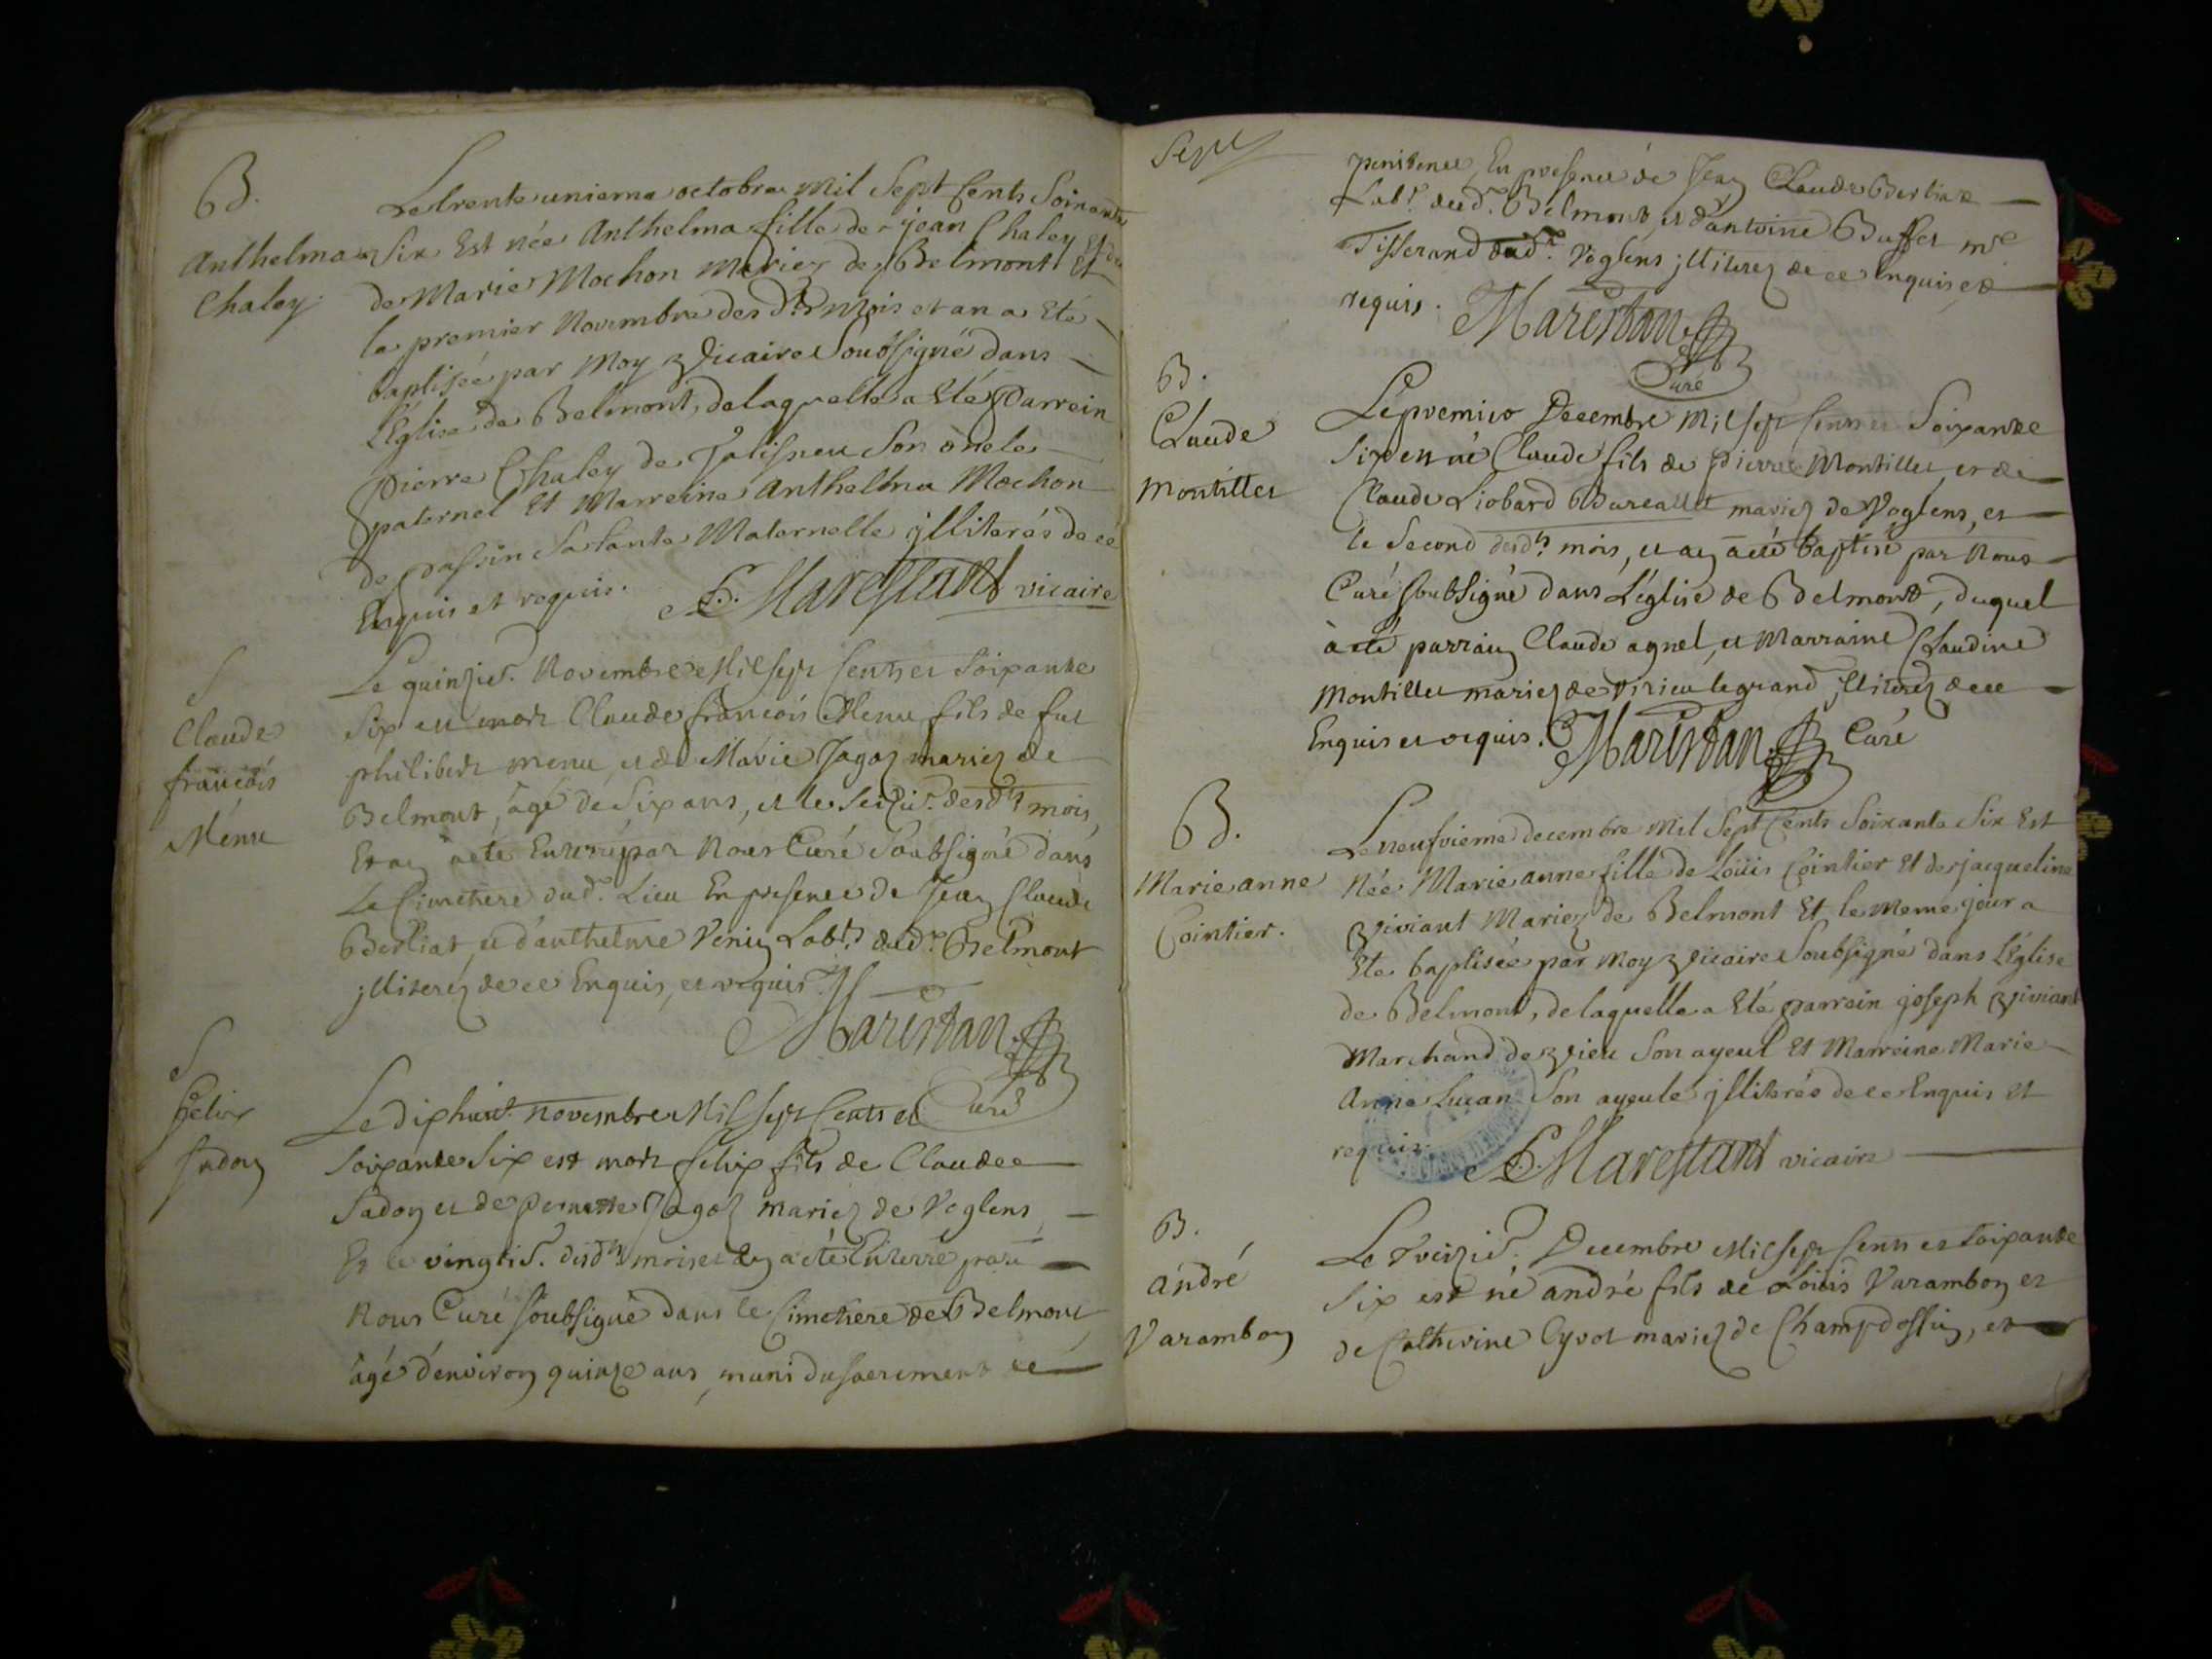 B.
Anthelma
Chaley
Le trente unieme octobre Mil Sept Cents Soixante
Six Est née Anthelma fille de jean Chaley Et de
de Marie Mochon Mariez de Belmont Et
le premier Novembre des dts Mois et an a Eté
baptisée par Moy Vicaire Soubsigné dans
L'Eglise de Belmont, de laquelle a Eté Parrein
pierre Chaley de Talisneu Son oncle
paternel Et Marreine Anthelma Mochon
de passin Sa tante Maternelle jlliterés de cé
Enquis et requis. Marestant vicaire
S
Claude
francois
Menu
Le quinzie. Novembre Mil sept Cents et Soixante
Six est mort Claude francois Menu fils de fut
philibert menu, et de Marie Jagoz mariez de
Belmont, âgé de Six ans, et le Seizie. desdts mois,
Et an a été Enterré par Nous Curé Soubsigné dans
Le Cimetiere dud. Lieu En presence de Jean Claude
Berliat, et d'anthelme Venin Labrs dud. Belmont
jlliterez de ce Enquis, et requis.
Marestan
Curé
S
felix
Sadon
Le dixhuit. novembre Mil sept Cents et
Soixante Six est mort felix fils de Claude
Sadon et de pernette Jagoz mariez de Voglens,
Et le vingtie. desdts mois et an a été Enterré par
Nous Curé soubsigné dans le Cimetiere de Belmont
âgé d'environ quinze ans, muni du sacrement de
Sept
penitence, En presence de Jean Claude Berliat
Labr. dud. Belmont, et d'antoine Buffet me
Tisserand dud. Voglens jlliterez de ce Enquis et
requis. Marestan
Curé
B.
Claude
Montillet
Le premier Decembre Mil sept Cents et Soixante
Six est né Claude fils de pierre Montillet, et de
Claude Liobard Bureallet mariez de Voglens, et
le Second desdts mois, et an a été baptisé par Nous
Curé soubsigné dans L'église de Belmont, duquel
à été parrain Claude agnel, et Marraine Claudine
Montillet mariez de Virieu le grand jlliterez de ce
Enquis et requis. Marestan Curé
B.
Marie anne
Cointier.
Le neufvieme decembre Mil Sept Cents Soixante Six Est
Née Marie anne fille de Loüis Cointier Et de jacqueline
Viviant Mariez de Belmont Et le Meme jour a
Ete baptisée par Moy Vicaire Soubsigné dans L'Eglise
de Belmont, de laquelle a Eté parrein joseph Viviant
Marchand de Vieu Son ayeul Et Marreine Marie
Anne Lucan Son ayeule jlliterés de ce Enquis Et
requis. Marestant vicaire
B.
André
Varambon
Le treizie. Decembre Mil sept Cents et Soixante
Six est né andré fils de Loüis Varambon et
de Catherine Cyvot mariez de Champdossin, et